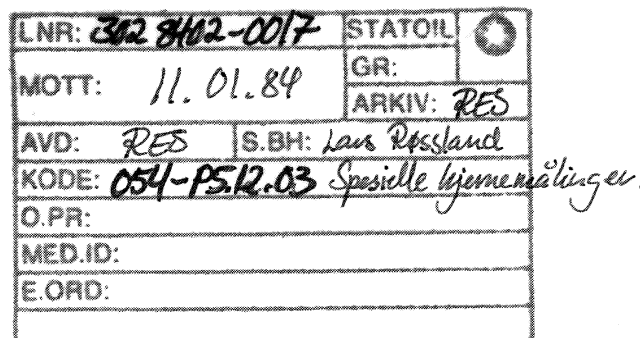 LNR: 302 8402-0017 STATOIL
MOTT: 11.01.84 GR:
ARKIV: RES
AVD: RES S.BH: Lars Røssland
KODE: 054-P5.12.03 Spesielle kjernemålinger.
O.PR:
MED.ID:
E.ORD: